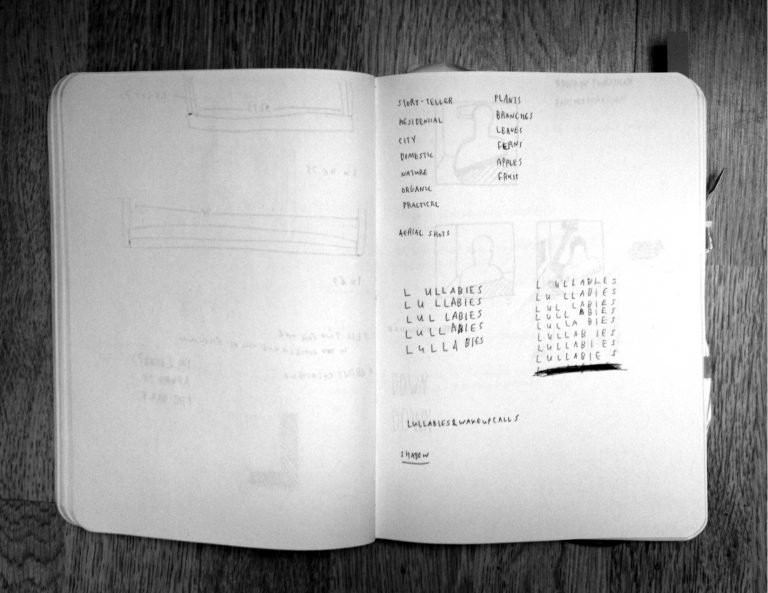 STORY-TELLER
RESIDENTIAL
CITY
DOMESTIC
NATURE
ORGANIC
PRACTICAL
PLANTS
BRANCHES
LEAVES
FERNS
APPLES
FRUIT
AERIAL SHOTS
L ULLABIES
LU LLABIES
LUL LABIES
LULL ABIES
LULLA BIES
L ULLABIES
LU LLABIES
LUL LABIES
LULL ABIES
LULLA BIES
LULLAB IES
LULLABI ES
LULLABIE S
LULLABIES&WAKEUPCALLS
SHADOW